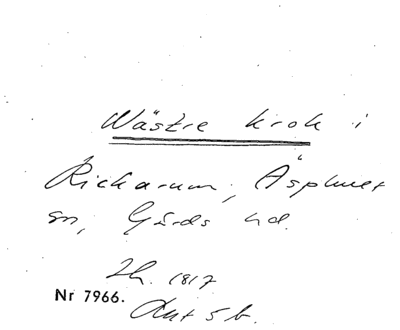 Wästre krok i
Rickarum, Äsphult
sn, Gärds hd.
Lh. 1817
Nr 7966.
Ant 5 b.